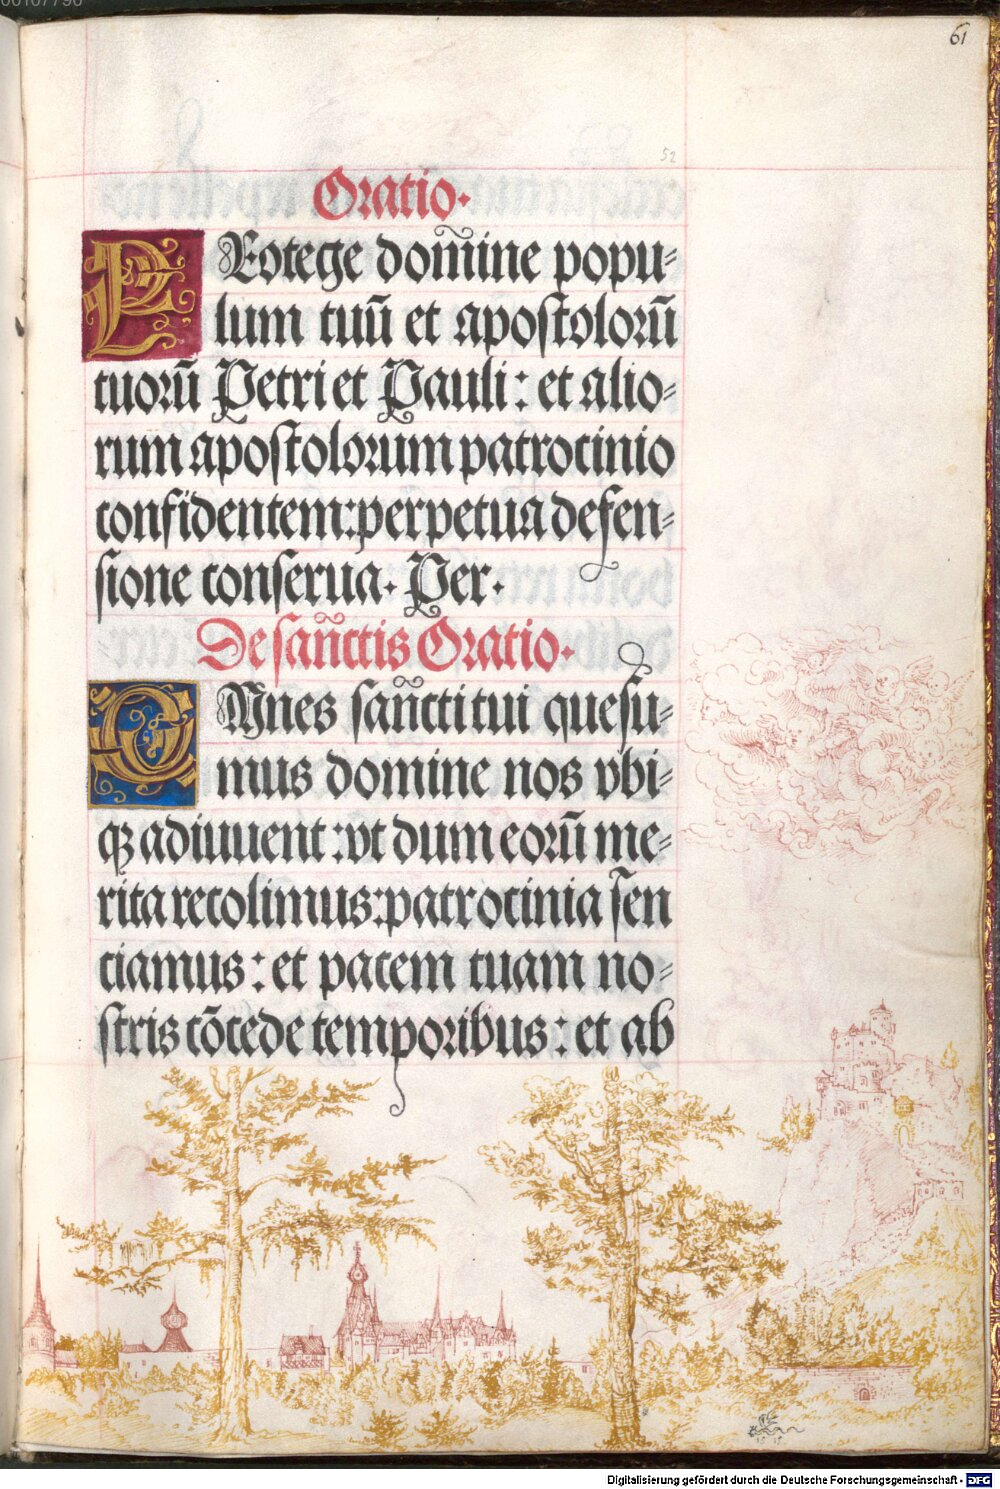 00107796
61
52
Oratio.
PRotege dom̃ine popu⸗
lum tuū et apoſtoloꝛū
tuoꝛū Petri et Pauli: et alio⸗
rum apoſtoloꝛum patrocinio
confidentem: perpetua defen⸗
ſione conſerua. Per.
De ſañctis Oratio.
OMnes ſañcti tui queſu⸗
mus domine nos vbi⸗
qꝫ adiuuent: vt dum eoꝛū me⸗
rita recolimus: patrocinia ſen
ciamus: et pacem tuam no⸗
ſtris cōcede temporibus: et ab
Digitalisierung gefördert durch die Deutsche Forschungsgemeinschaft - DFG